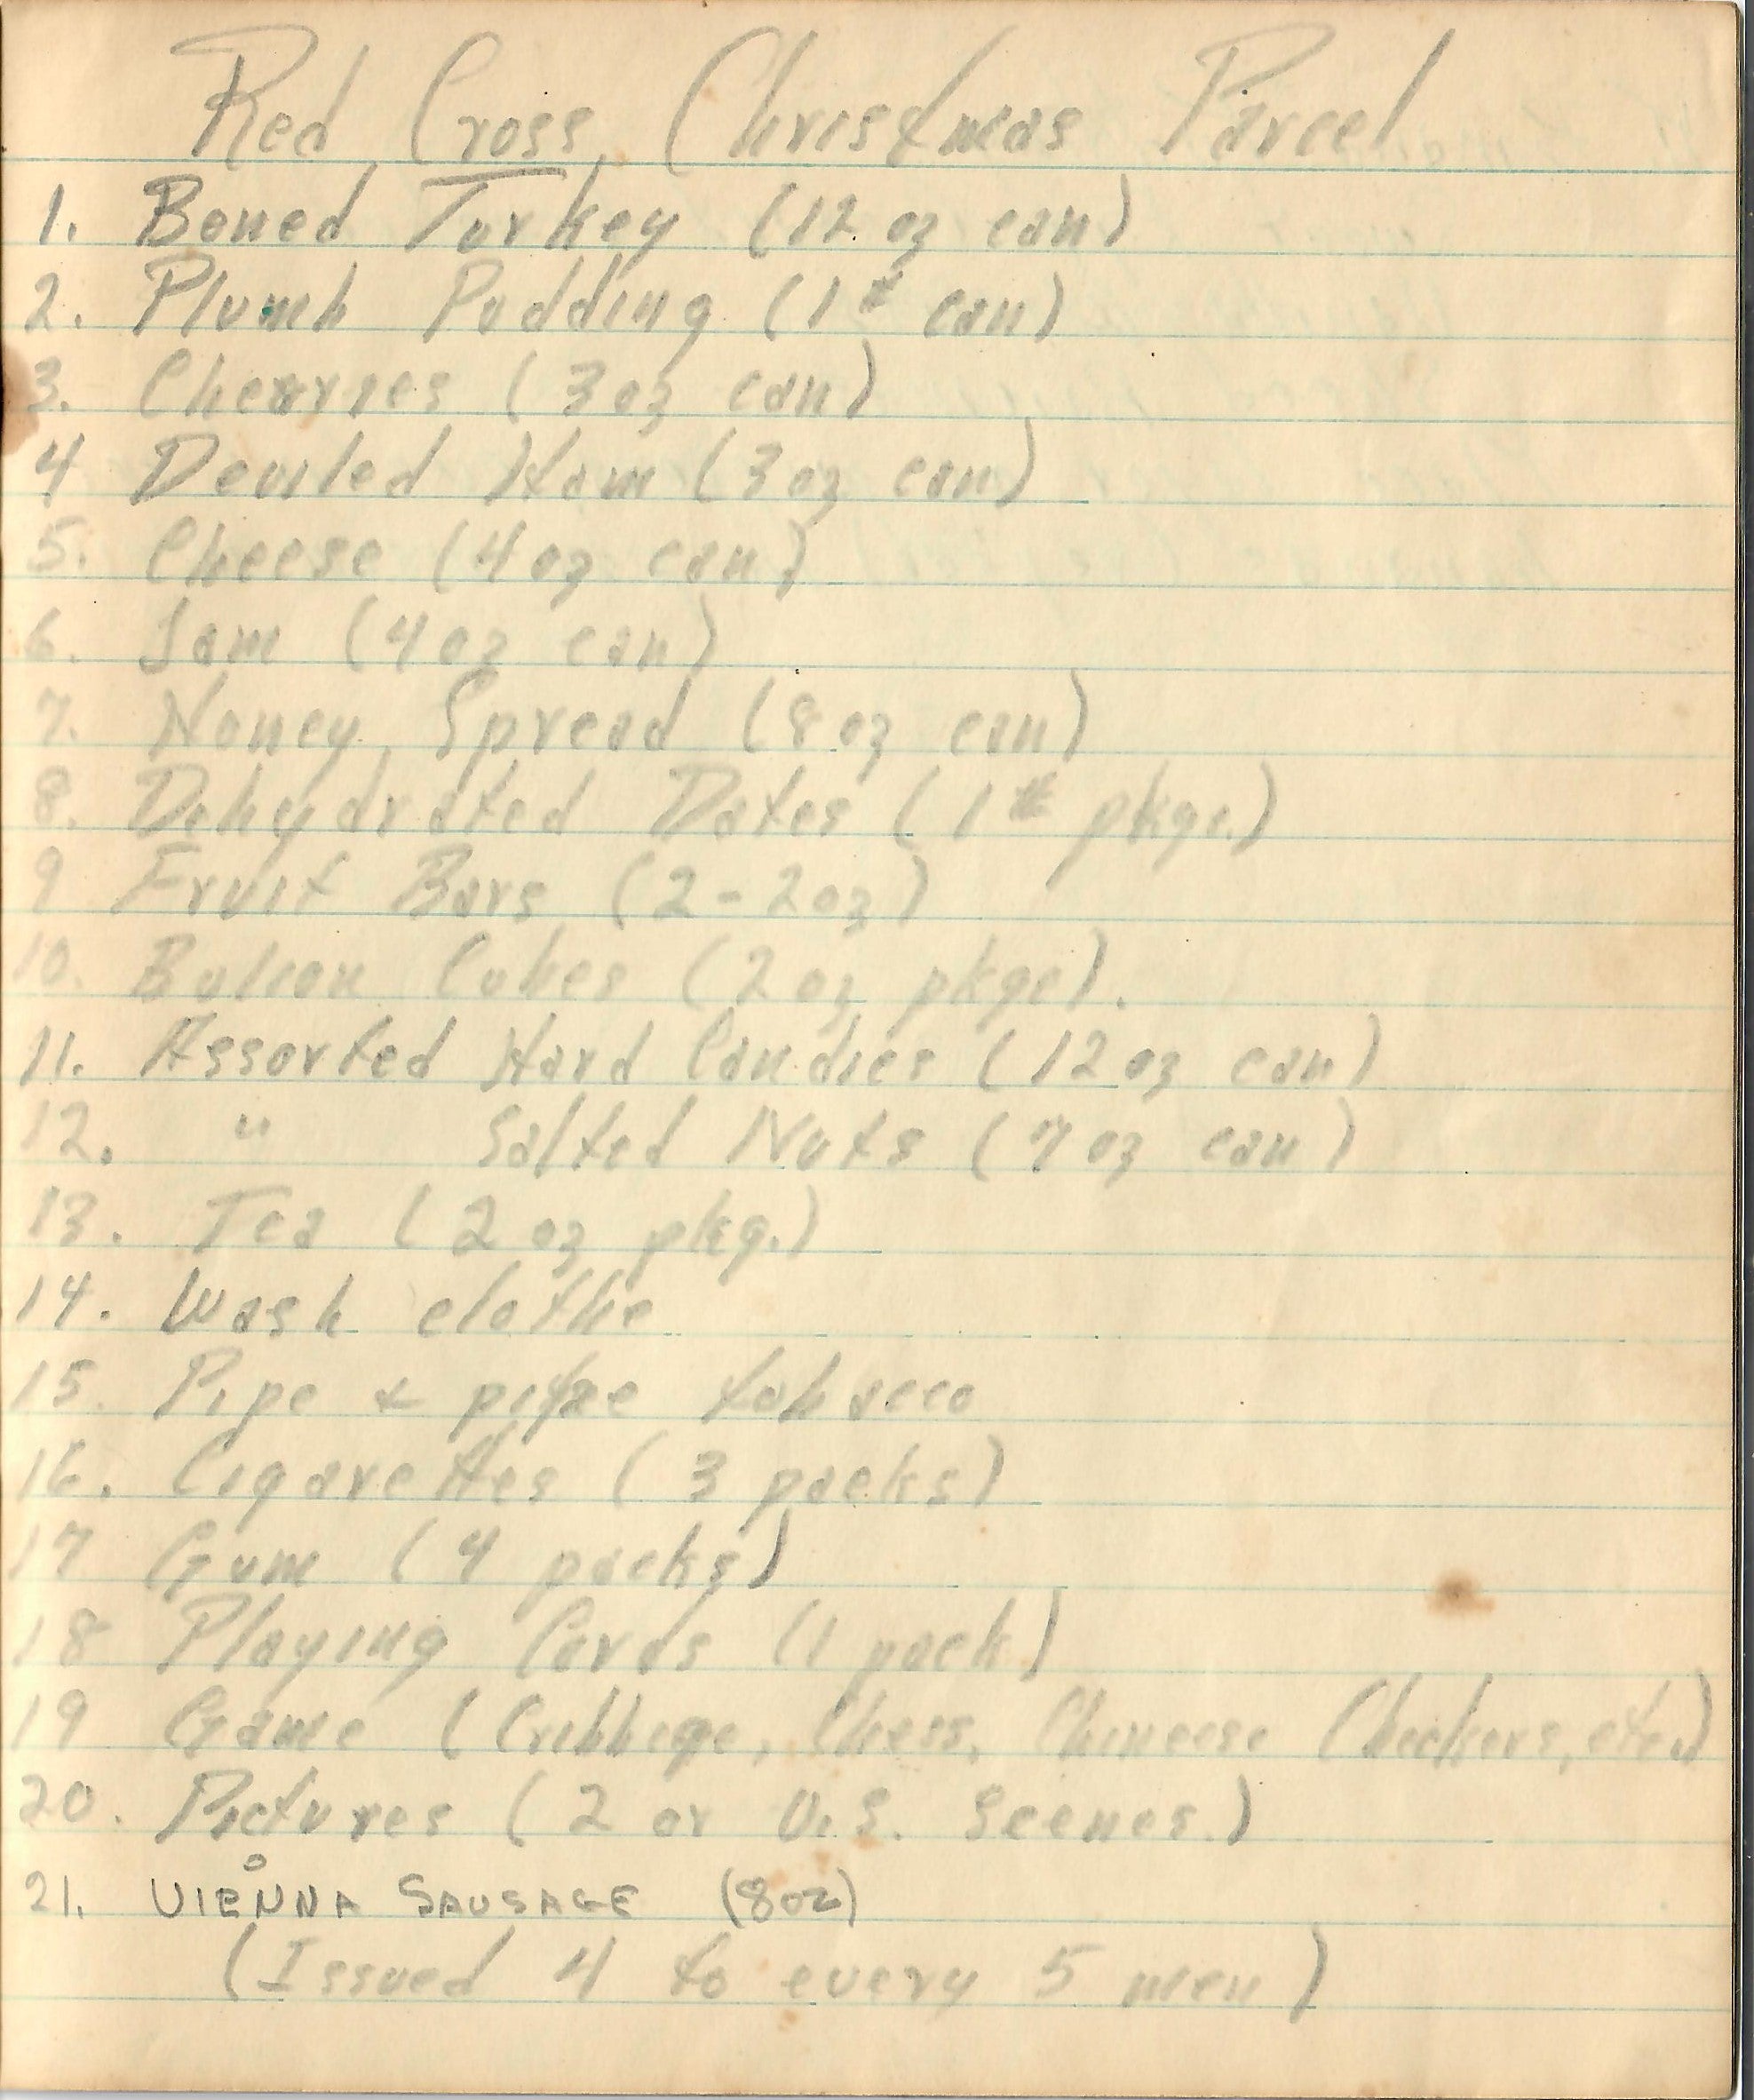 Red Cross Christmas Parcel
1. Boned Turkey (12 oz can)
2. Plumb Pudding (1# can)
3. Cherries (3 oz can)
4 Deviled Ham (3 oz can)
5. Cheese (4 oz can)
6. Jam (4 oz can)
7. Honey Spread (8 oz can)
8. Dehydrated Dates (1# pkge.)
9 Fruit Bars (2-2oz)
10. Bulion Cubes (2 oz pkge).
11. Assorted Hard Candies (12 oz can)
12. " Salted Nuts (7 oz can)
13. Tea (2 oz pkg.)
14. Wash clothe
15. Pipe & pipe tobacco
16. Cigarettes (3 packs)
17 Gum (4 packs)
18 Playing Cards (1 pack)
19 Game (Cribbege, Chess, Chineese Checkers, etc.)
20. Pictures (2 or U.S. Scenes.)
21. VIENNA SAUSAGE (8oz)
(Issued 4 to every 5 men)